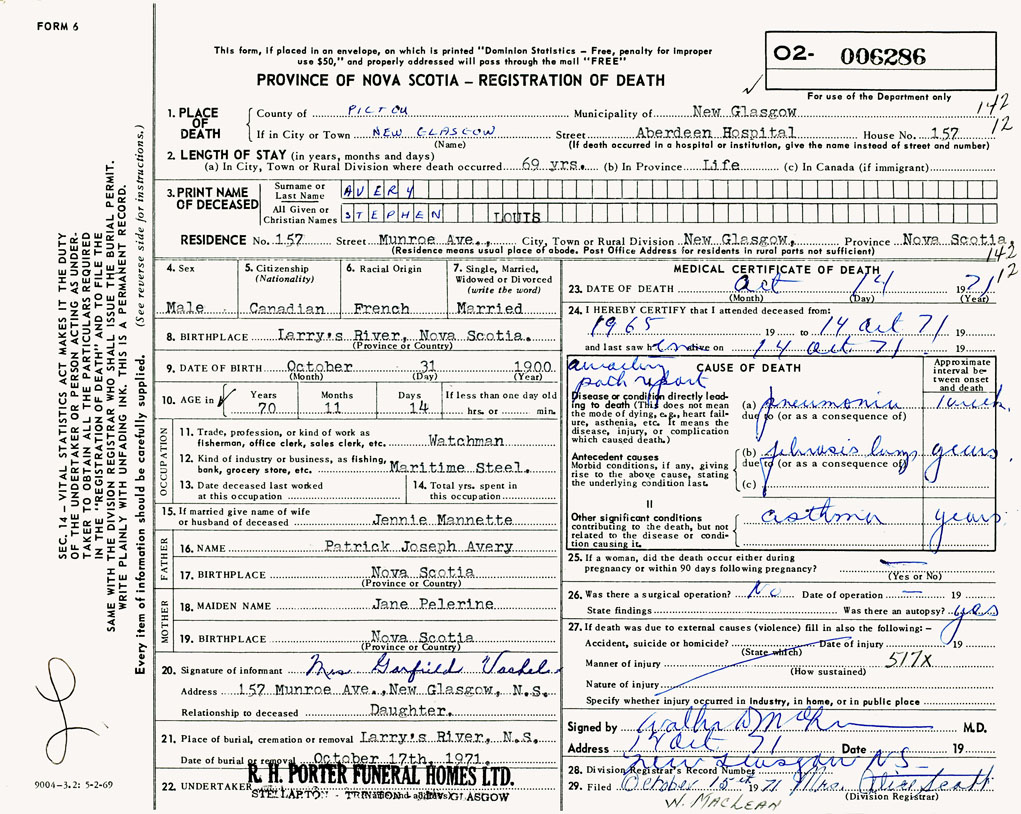 FORM 6
This form, if placed in an envelope, on which is printed "Dominion Statistics — Free, penalty for improper
use $50," and properly addressed will pass through the mail "FREE"
PROVINCE OF NOVA SCOTIA — REGISTRATION OF DEATH
O2- 006286
For use of the Department only
142
12
1. PLACE OF DEATH
County of PICTOU Municipality of New Glasgow
If in City or Town NEW GLASGOW Street Aberdeen Hospital House No. 157
(Name) (If death occurred in a hospital or institution, give the name instead of street and number)
2. LENGTH OF STAY (in years, months and days)
(a) In City, Town or Rural Division where death occurred 69 yrs. (b) In Province Life (c) In Canada (if immigrant)
3. PRINT NAME OF DECEASED
Surname or Last Name AVERY
All Given or Christian Names STEPHEN LOUIS
RESIDENCE No. 157 Street Munroe Ave., City, Town or Rural Division New Glasgow, Province Nova Scotia,
(Residence means usual place of abode. Post Office Address for residents in rural parts not sufficient)
142
12
4. Sex
Male
5. Citizenship
(Nationality)
Canadian
6. Racial Origin
French
7. Single, Married,
Widowed or Divorced
(write the word)
Married
8. BIRTHPLACE Larry's River, Nova Scotia.
(Province or Country)
9. DATE OF BIRTH October 31 1900
(Month) (Day) (Year)
10. AGE in Years Months Days If less than one day old
70 11 14 hrs. or min.
OCCUPATION
11. Trade, profession, or kind of work as
fisherman, office clerk, sales clerk, etc. Watchman
12. Kind of industry or business, as fishing,
bank, grocery store, etc. Maritime Steel.
13. Date deceased last worked
at this occupation
14. Total yrs. spent in
this occupation
15. If married give name of wife
or husband of deceased Jennie Mannette
FATHER
16. NAME Patrick Joseph Avery
17. BIRTHPLACE Nova Scotia
(Province or Country)
MOTHER
18. MAIDEN NAME Jane Pelerine
19. BIRTHPLACE Nova Scotia
(Province or Country)
20. Signature of informant Mrs Garfield
Address 157 Munroe Ave., New Glasgow, N.S.
Relationship to deceased Daughter.
21. Place of burial, cremation or removal Larry's River, N.S.
Date of burial or removal October 17th, 1971.
22. UNDERTAKER R. H. PORTER FUNERAL HOMES LTD.
STELLARTON - TRENTON - NEW GLASGOW
MEDICAL CERTIFICATE OF DEATH
23. DATE OF DEATH Oct 14 1971
(Month) (Day) (Year)
24. I HEREBY CERTIFY that I attended deceased from:
1965 19 to 14 Oct 71 19
and last saw him alive on 14 Oct 71 19
awaiting
path report
CAUSE OF DEATH
Approximate
interval be-
tween onset
and death
Disease or condition directly lead-
ing to death (This does not mean
the mode of dying, e.g., heart fail-
ure, asthenia, etc. It means the
disease, injury, or complication
which caused death.)
(a) pneumonia 1 week
due to (or as a consequence of)
Antecedent causes
Morbid conditions, if any, giving
rise to the above cause, stating
the underlying condition last.
(b) fibrosis lungs years
due to (or as a consequence of)
(c)
II
Other significant conditions
contributing to the death, but not
related to the disease or condi-
tion causing it.
asthma years
25. If a woman, did the death occur either during
pregnancy or within 90 days following pregnancy? —
(Yes or No)
26. Was there a surgical operation? No Date of operation — 19
State findings Was there an autopsy? yes
27. If death was due to external causes (violence) fill in also the following: —
Accident, suicide or homicide? Date of injury 19
(State which)
Manner of injury 517X
(How sustained)
Nature of injury
Specify whether injury occurred in industry, in home, or in public place
Signed by M.D.
Address Date 19
15 Oct 71
New Glasgow NS.
28. Division Registrar's Record Number
29. Filed October 15th 1971 Mrs. Alice Scott
(Division Registrar)
W. MacLean
SEC. 14 — VITAL STATISTICS ACT MAKES IT THE DUTY
OF THE UNDERTAKER OR PERSON ACTING AS UNDER-
TAKER TO OBTAIN ALL THE PARTICULARS REQUIRED
IN THE "REGISTRATION OF DEATH" AND TO FILE THE
SAME WITH THE DIVISION REGISTRAR WHO SHALL ISSUE THE BURIAL PERMIT.
WRITE PLAINLY WITH UNFADING INK. THIS IS A PERMANENT RECORD.
Every item of information should be carefully supplied. (See reverse side for instructions.)
9004-3.2: 5-2-69